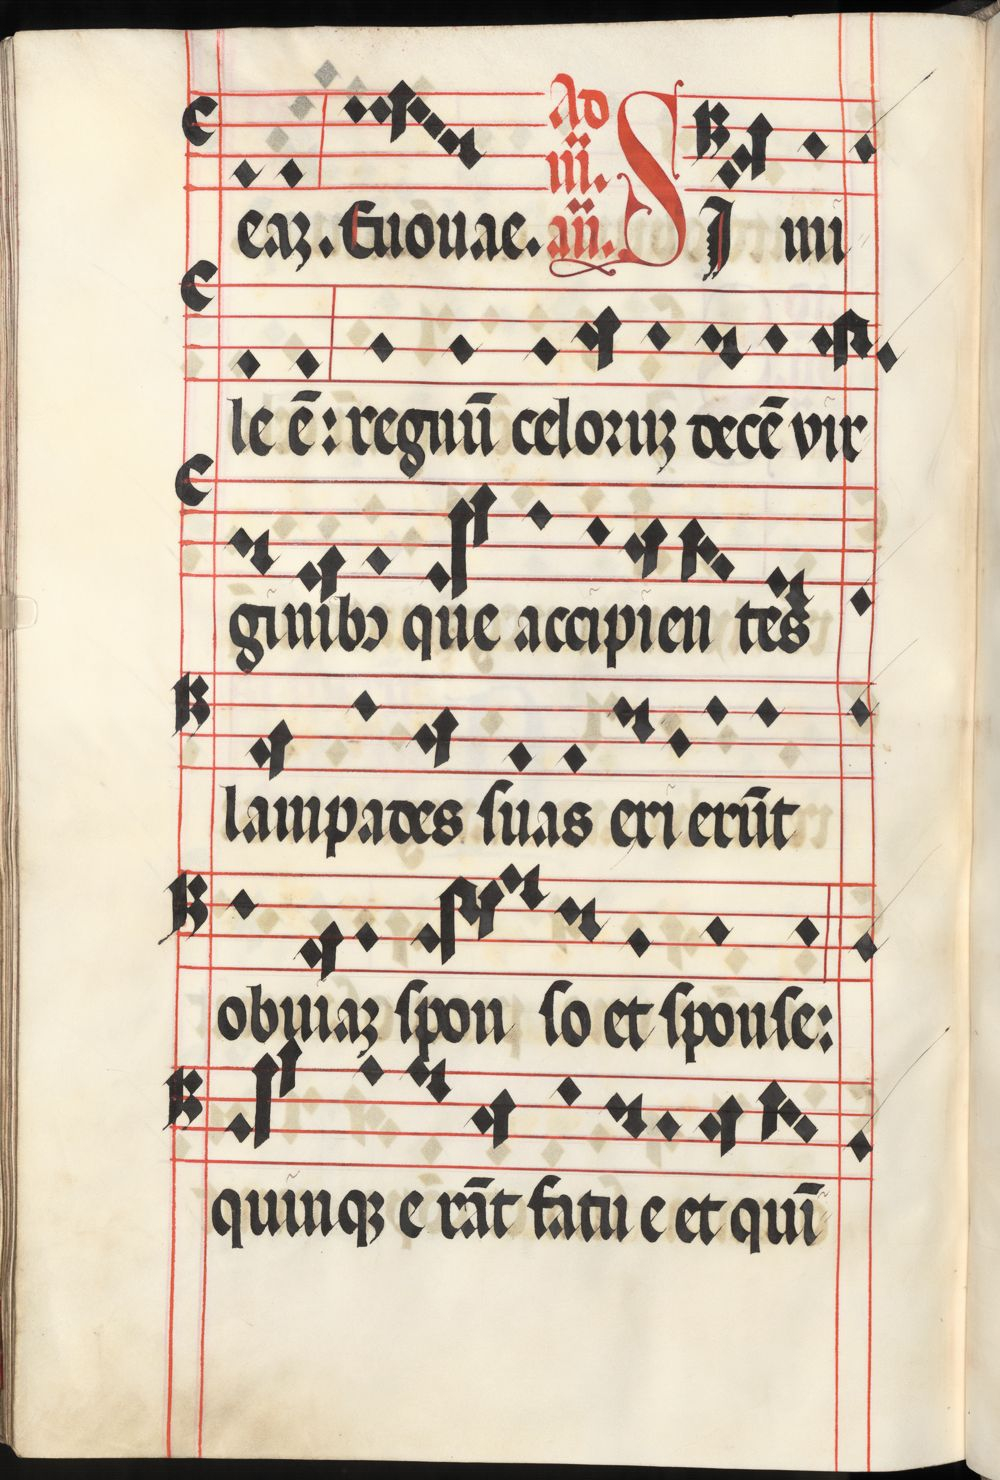 eaꝝ. Euouae. Ad iii. añ. SI mi
le ē: regnū celoꝛuꝝ decē vir
ginibꝫ que accipien tes
lampades suas exi erūt
obuiaꝫ spon so et sponse:
quinqꝫ e rāt fatu e et qui